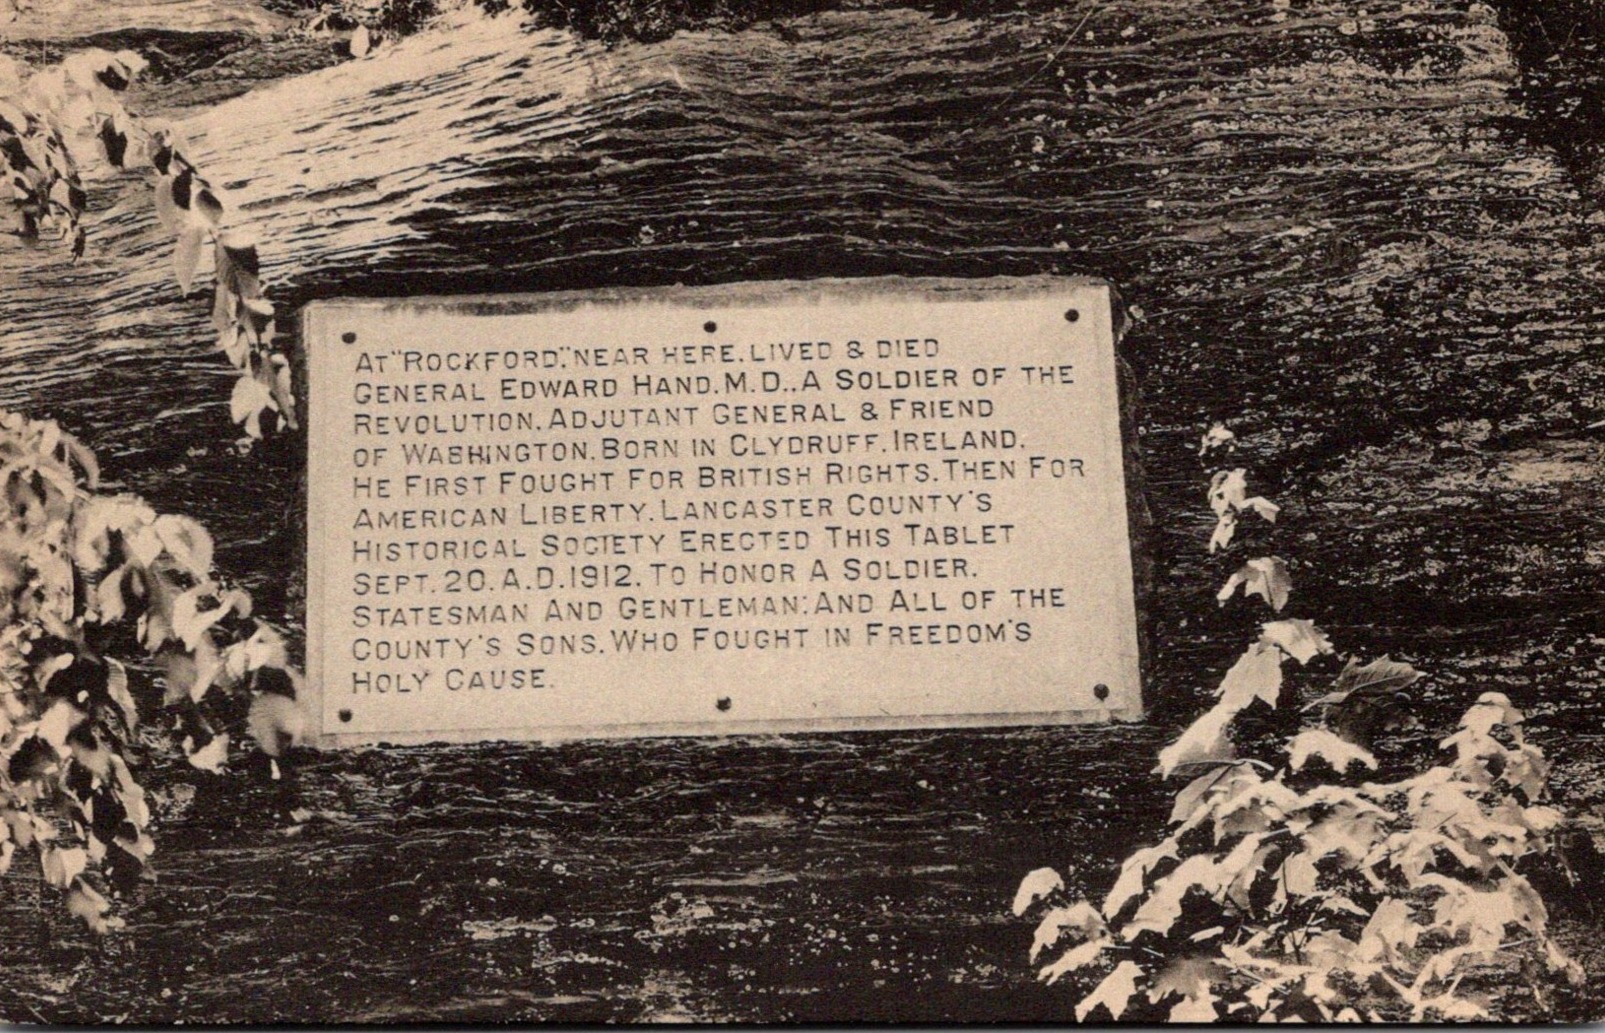 AT "ROCKFORD," NEAR HERE. LIVED & DIED
GENERAL EDWARD HAND. M.D., A SOLDIER OF THE
REVOLUTION. ADJUTANT GENERAL & FRIEND
OF WASHINGTON. BORN IN CLYDRUFF. IRELAND.
HE FIRST FOUGHT FOR BRITISH RIGHTS. THEN FOR
AMERICAN LIBERTY. LANCASTER COUNTY'S
HISTORICAL SOCIETY ERECTED THIS TABLET
SEPT. 20. A.D. 1912. TO HONOR A SOLDIER.
STATESMAN AND GENTLEMAN: AND ALL OF THE
COUNTY'S SONS. WHO FOUGHT IN FREEDOM'S
HOLY CAUSE.